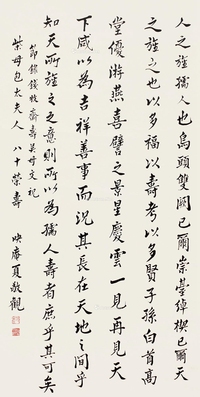 人之旌孺人也烏頭雙闕已爾崇臺綽楔已爾天
之旌之也以多福以壽考以多賢子孫白首高
堂優游燕喜譬之景星慶雲一見再見天
下咸以為吉祥善事而況其長在天地之間乎
知天所旌之之意則所以為孺人壽者庶乎其可矣
節錄錢牧齋壽吳母文祝
柴母包太夫人八十榮壽
映庵夏敬觀